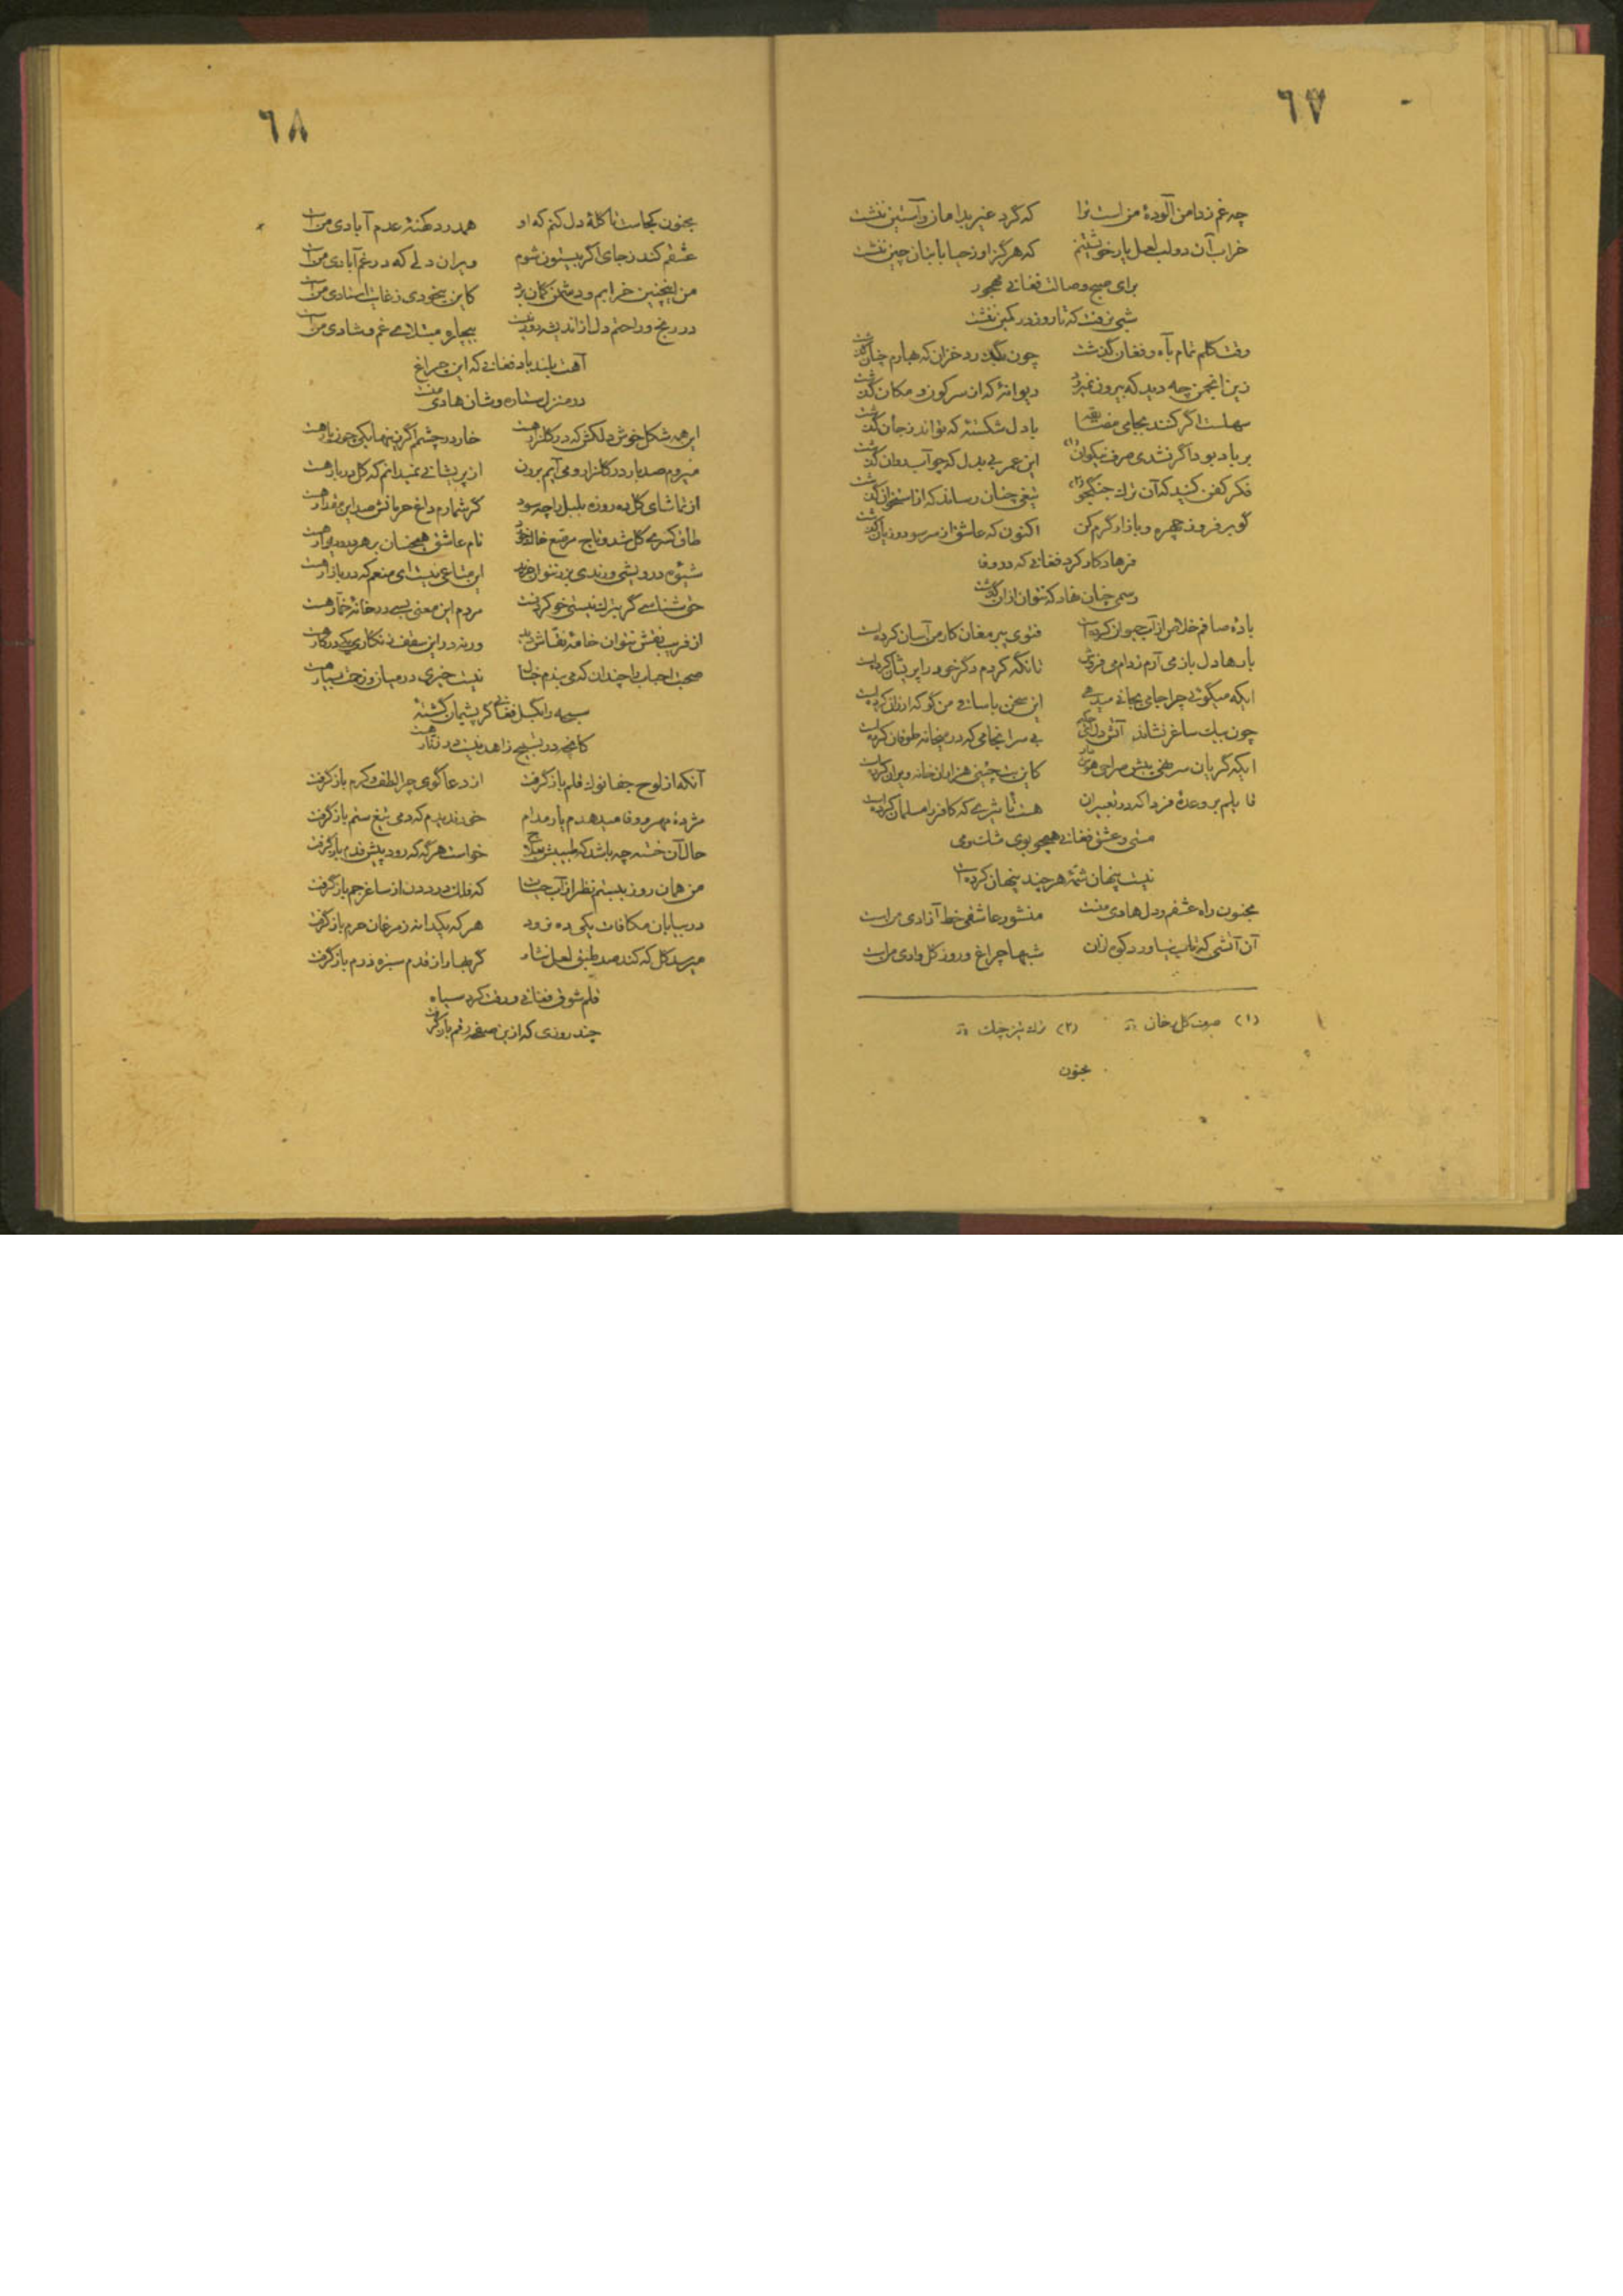 ٦٧
چه غم ز دامن آلودهٔ من است ترا که گرد غیر بدامان و آستین ننشت
خراب آن دو لب لعل یار خویشتنم که هرگز از حیا با بتان چین ننشت
برای صبح وصالت فغانی مهجور
شبی نرفت که تا روز در کمین ننشت
وقت گلم تمام بآه و فغان گذشت چون بگذرد خزان که بهارم چنان گذشت
زین انجمن چه دید که بیرون نمیرود دیوانهٔ که از سر کون و مکان گذشت
سهلست اگر کنند بجامی مضایقه با دل شکستهٔ که تواند ز جان گذشت
بر باد بود اگر نشدی صرف نیکوان (۱) این عمر بی بدل که چو آب روان گذشت
فکر کفن کنید که آن ترک جنگجو (۲) تیغی چنان رساند که از استخوان گذشت
گو بر فروز چهره و بازار گرم کن اکنون که عاشق از سر سود و زیان گذشت
فرهاد کار کرد فغانی که در وفا
رسمی چنان نهاد که نتوان ازان گذشت
بادهٔ صافم خلاص از آب حیوان کرده است فتوی پیر مغان کار من آسان کرده است
بارها دل باز می آرم ز دام می فروش تا نگه کردم دگر خود را پریشان کرده است
ایکه میگوئی چرا جامی بجانی میدهی این سخن با ساقی من گو که ارزان کرده است
چون بیک ساغر نشاند آتش دل بی سرانجامی که در میخانه طوفان کرده است
ایکه گریان سر نهی پیش صراحی کاین بت چینی هزاران خانه ویران کرده است
قایلم بر وعدهٔ فردا که در تعبیر آن هست تأثیری که کافر را مسلمان کرده است
مستی و عشق فغانی همچو بوی مشک و می
نیست پنهان شمهٔ هر چند پنهان کرده است
مجنون راه عشقم و دل هادی منست منشور عاشقی خط آزادی من است
آن آتشی که تاب نیاورد کوه ازان شبها چراغ و روز گل وادی من است
(۱) صرف گل رخان (۲) ترک تیز چنگ
مجنون
٦٨
مجنون کجاست تا گلهٔ دل کنم که او همدرد کهنهٔ عدم آبادی من است
عشقم کند ز جای اگر بیستون شوم ویران دلی که در غم آبادی من است
من اینچنین خرابم و دشمن گمان برد کاین بیخودی ز غایت استادی من است
در رنج و راحتم دل از اندیشه دور نیست بیچاره مبتلای غم و شادی من است
آهت بلند باد فغانی که این چراغ
در منزل ستاره وشان هادی منست
این همه شکل خوش دلکش که در گلزار هست خار در چشمم اگر یکی چون یار هست
میروم صد بار در گلزار و می آیم برون از پریشانی نمیدانم که گل بر بار هست
از تماشای گل ده روزه بلبل را چه سود گر شمارم داغ حرمانش صد این مقدار هست
طاق کسری گل شد و تاج مرصع خاک خورد نام عاشق همچنان بر هر در و دیوار هست
شیوهٔ درویشی و رندی بزر نتوان خرید این متاعی نیست ای منعم که در بازار هست
حق شناسی گر بترک نیستی خو کردنست مردم این معنی بسی در خانهٔ خمار هست
از فریب نقش نتوان خامهٔ نقاش دید ورنه در این سقف زنگاری یکی در کار هست
صحبت احباب را چندان که می بینم نیست چیزی در میان و زحمت بسیار هست
سبحه را بگسل فغانی گر پشیمان گشتهٔ
کانچه در تسبیح زاهد نیست در زنار هست
آنکه از لوح جفا نوک قلم باز گرفت از دعا گوی چرا لطف و کرم باز گرفت
مژدهٔ مهر و وفا میدهدم یار مدام خود ندیدم که دمی تیغ ستم باز گرفت
حال آن خسته چه باشد که طبیبش خواست هر گه که رود پیش قدم باز گرفت
من همان روز ببستم نظر از آب حیات که فلک دُرد دَن از ساغر جم باز گرفت
در بیابان مکافات یکی ده فزود هر که یکدانه ز مرغان حرم باز گرفت
میرسد گل که کند صد طبق لعل نثار گر بهار از قدم سبزه درم باز گرفت
قلم شوق فغانی ورقت کرد سیاه
چند روزی که ازین صفحه رقم باز گرفت